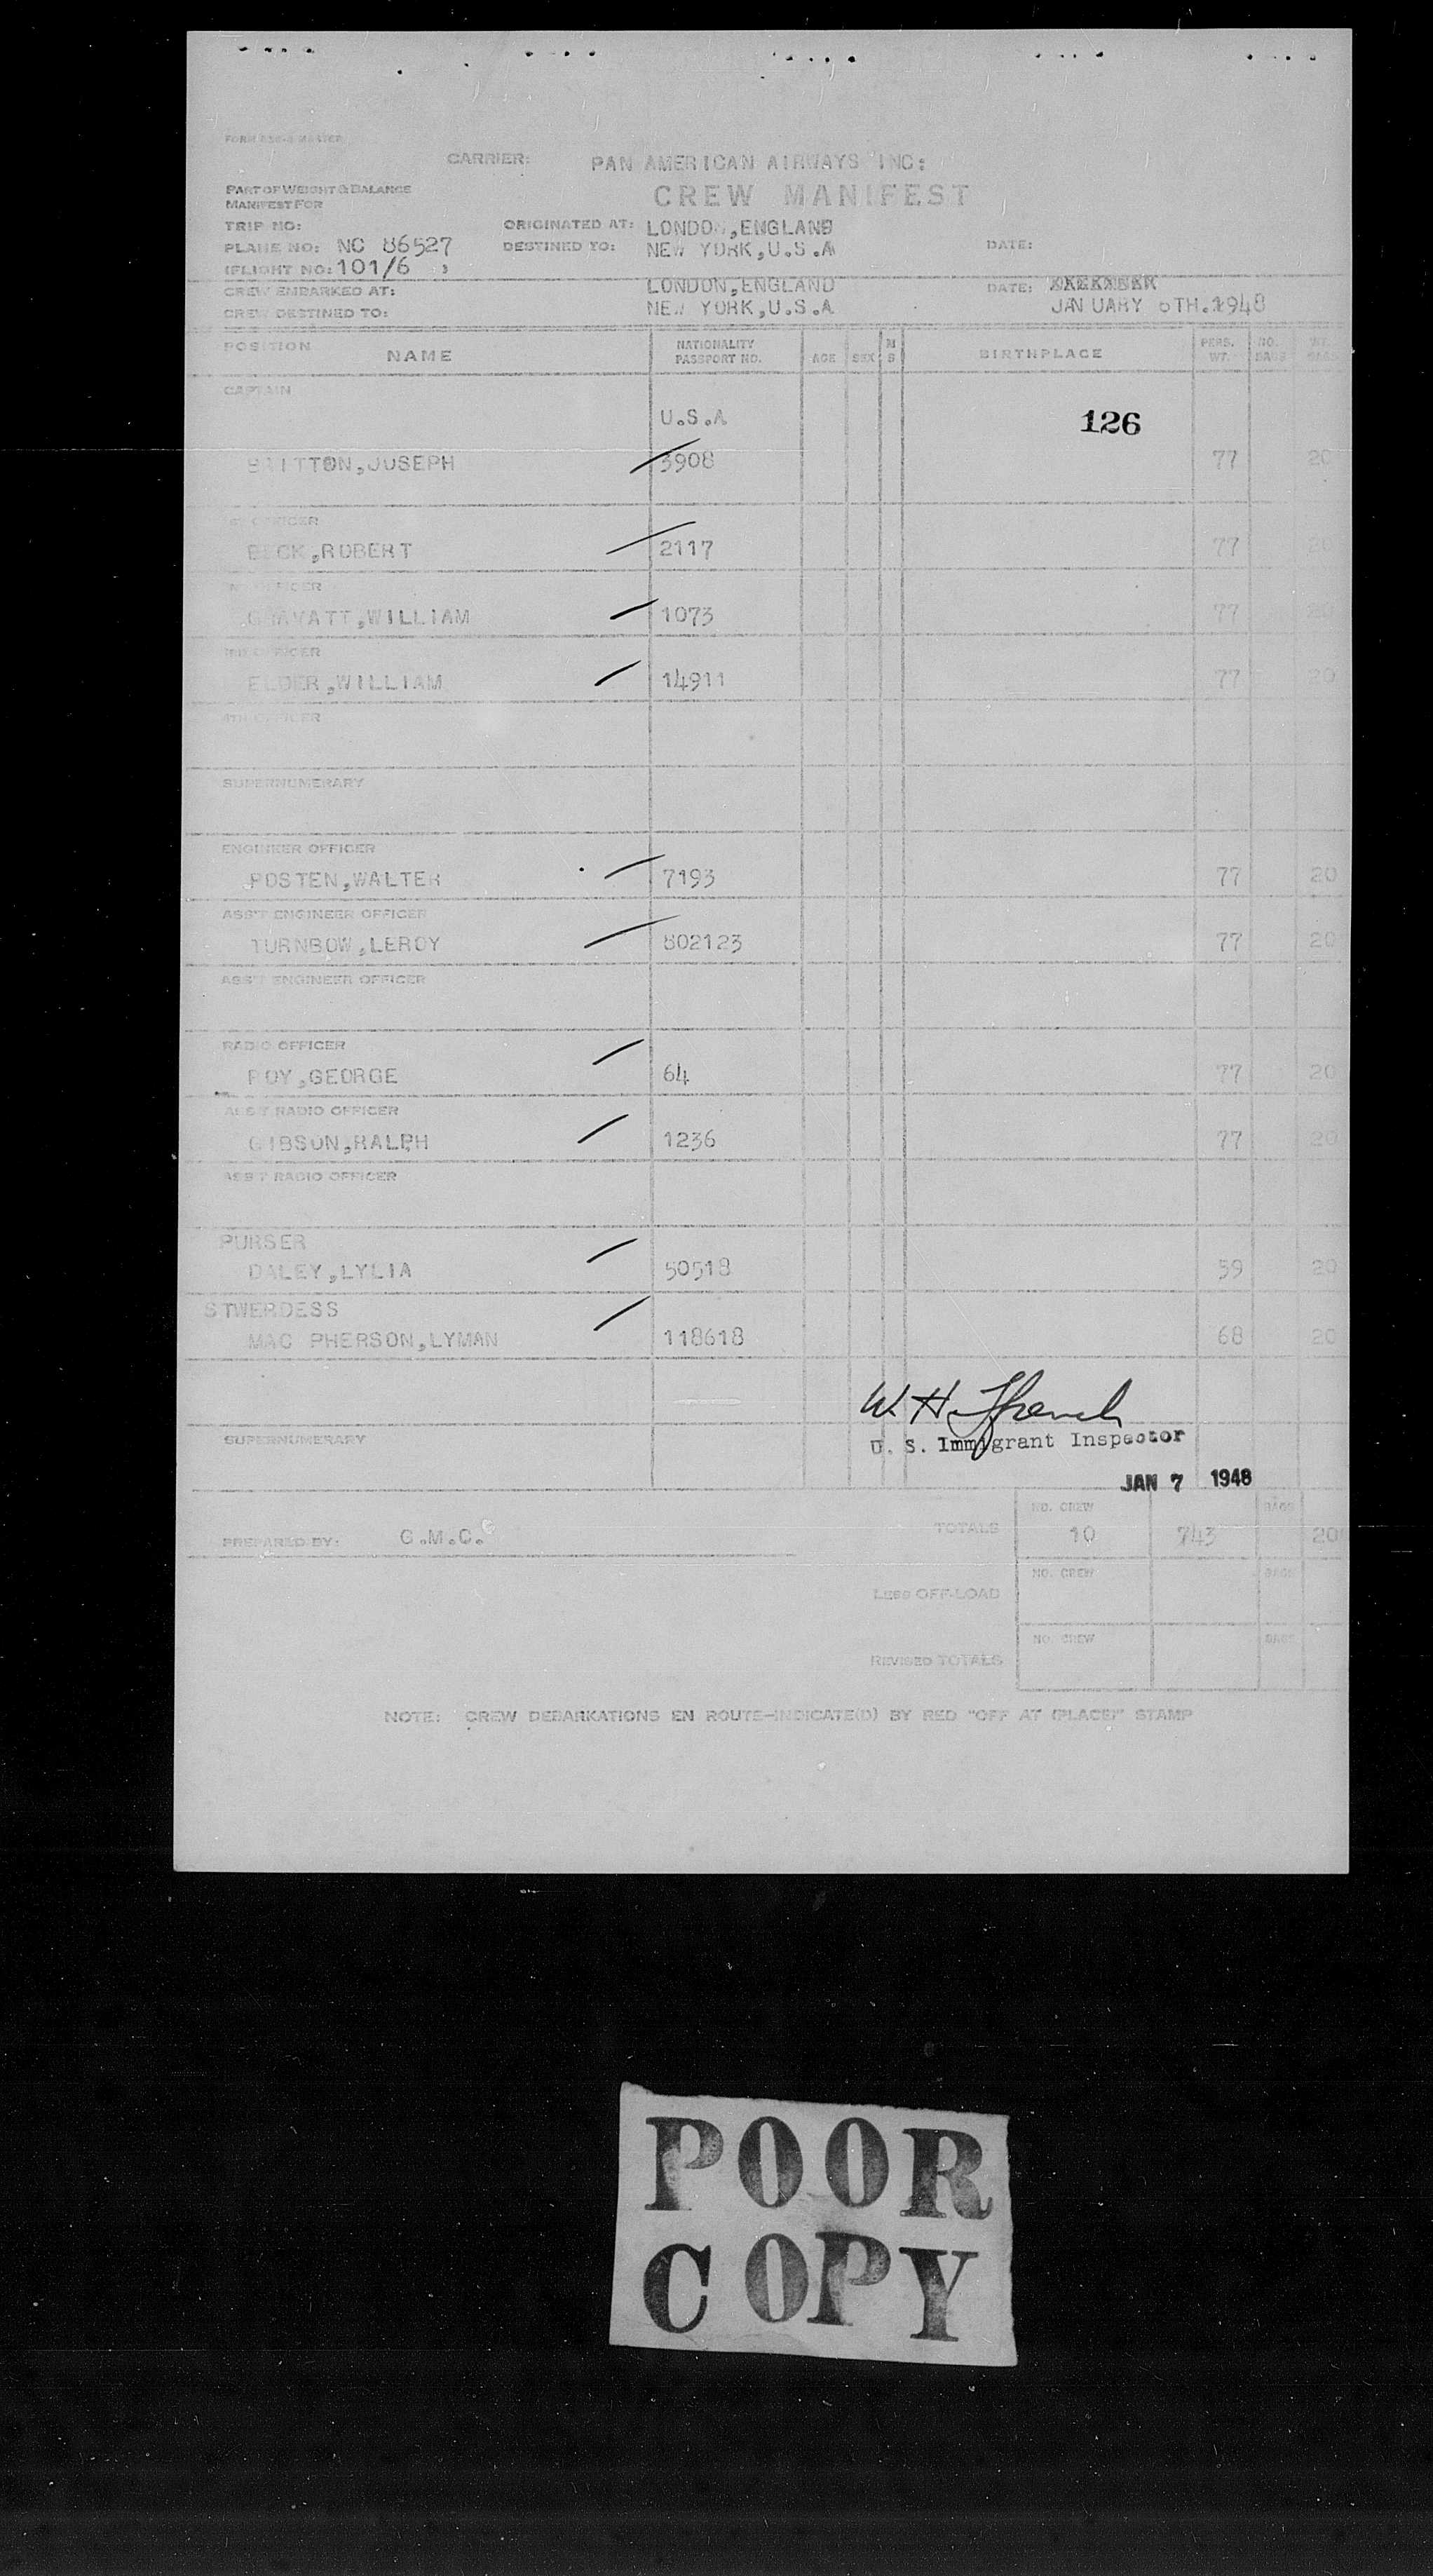 CARRIER: PAN AMERICAN AIRWAYS INC:
PART OF WEIGHT & BALANCE
MANIFEST FOR
CREW MANIFEST
TRIP NO: ORIGINATED AT: LONDON,ENGLAND
PLANE NO: NC 86527 DESTINED TO: NEW YORK,U.S.A DATE:
(FLIGHT NO: 101/6 )
CREW EMBARKED AT: LONDON,ENGLAND DATE:
CREW DESTINED TO: NEW YORK,U.S.A JANUARY 6TH.1948
POSITION NAME NATIONALITY PASSPORT NO. AGE SEX M S BIRTHPLACE PERS. WT. NO. BAGS WT. BAGS
CAPTAIN
U.S.A 126
BRITTON,JOSEPH 3908 77 20
1ST OFFICER
BECK,ROBERT 2117 77 20
2ND OFFICER
GRAVATT,WILLIAM 1073 77 20
3RD OFFICER
ELDER,WILLIAM 14911 77 20
4TH OFFICER
SUPERNUMERARY
ENGINEER OFFICER
POSTEN,WALTER 7193 77 20
ASS'T ENGINEER OFFICER
TURNBOW,LEROY 802123 77 20
ASS'T ENGINEER OFFICER
RADIO OFFICER
ROY,GEORGE 64 77 20
ASS'T RADIO OFFICER
GIBSON,RALPH 1236 77 20
ASS'T RADIO OFFICER
PURSER
DALEY,LYLIA 50518 59 20
STWERDESS
MAC PHERSON,LYMAN 118618 68 20
W. H.
SUPERNUMERARY U. S. Immigrant Inspector
JAN 7 1948
NO. CREW BAGS
PREPARED BY: G.M.C. TOTALS 10 743 20
NO. CREW BAGS
LESS OFF-LOAD
NO. CREW BAGS
REVISED TOTALS
NOTE: CREW DEBARKATIONS EN ROUTE-INDICATE(D) BY RED "OFF AT (PLACE)" STAMP
POOR
COPY